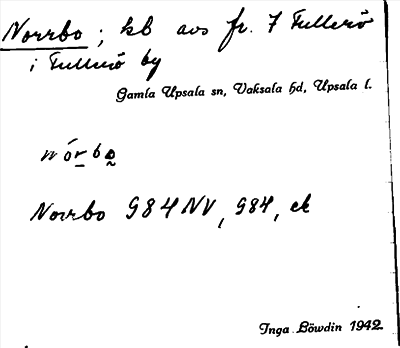 Norrbo ; kb avs fr. 7 Fullerö
i Fullerö by
Gamla Upsala sn, Vaksala hd, Upsala l.
nórbo
Norrbo 984 NV, 984, ek
Inga Löwdin 1942.